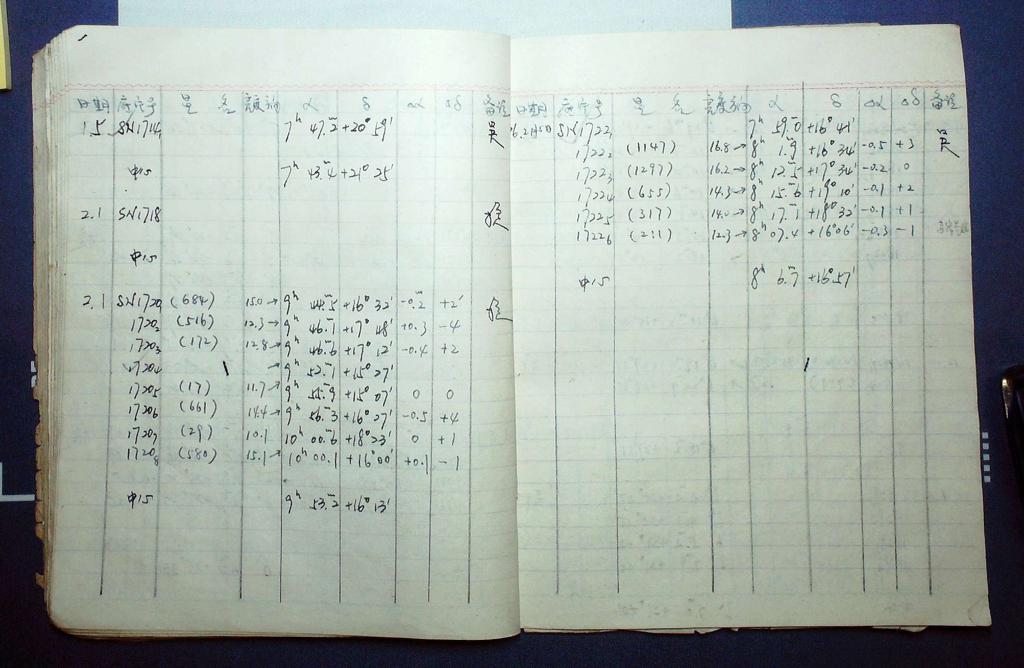 日期 序号 星名 亮度 α δ Δα Δδ 备注
1.5 SN1714₁ 7ʰ 47.ᵐ2 +20° 59′ 吴
中心 7ʰ 43.ᵐ4 +21° 25′
2.1 SN1718
中心
2.1 SN1720₁ (684) 15.0→ 9ʰ 44.ᵐ5 +16° 32′ -0.ᵐ2 +2′
1720₂ (516) 12.3→ 9ʰ 46.ᵐ1 +17° 48′ +0.3 -4
1720₃ (172) 12.8→ 9ʰ 46.ᵐ6 +17° 12′ -0.4 +2
1720₄ → 9ʰ 52.ᵐ1 +15° 27′
1720₅ (17) 11.7→ 9ʰ 55.ᵐ9 +15° 07′ 0 0
1720₆ (661) 14.4→ 9ʰ 56.ᵐ3 +16° 27′ -0.5 +4
1720₇ (29) 10.1 10ʰ 00.ᵐ6 +18° 23′ 0 +1
1720₈ (580) 15.1→ 10ʰ 00.ᵐ1 +16° 00′ +0.1 -1
中心 9ʰ 53.ᵐ2 +16° 13′
日期 序号 星名 亮度 α δ Δα Δδ 备注
SN1722₁ 7ʰ 59.ᵐ0 +16° 41′ 吴
1722₂ (1147) 16.8→ 8ʰ 1.ᵐ9 +16° 34′ -0.5 +3
1722₃ (1297) 16.2→ 8ʰ 12.ᵐ5 +17° 34′ -0.2 0
1722₄ (655) 14.3→ 8ʰ 15.ᵐ6 +19° 10′ -0.1 +2
1722₅ (317) 14.0→ 8ʰ 17.ᵐ1 +18° 32′ -0.1 +1
1722₆ (211) 12.3→ 8ʰ 07.ᵐ4 +16° 06′ -0.3 -1
中心 8ʰ 6.ᵐ7 +16° 57′